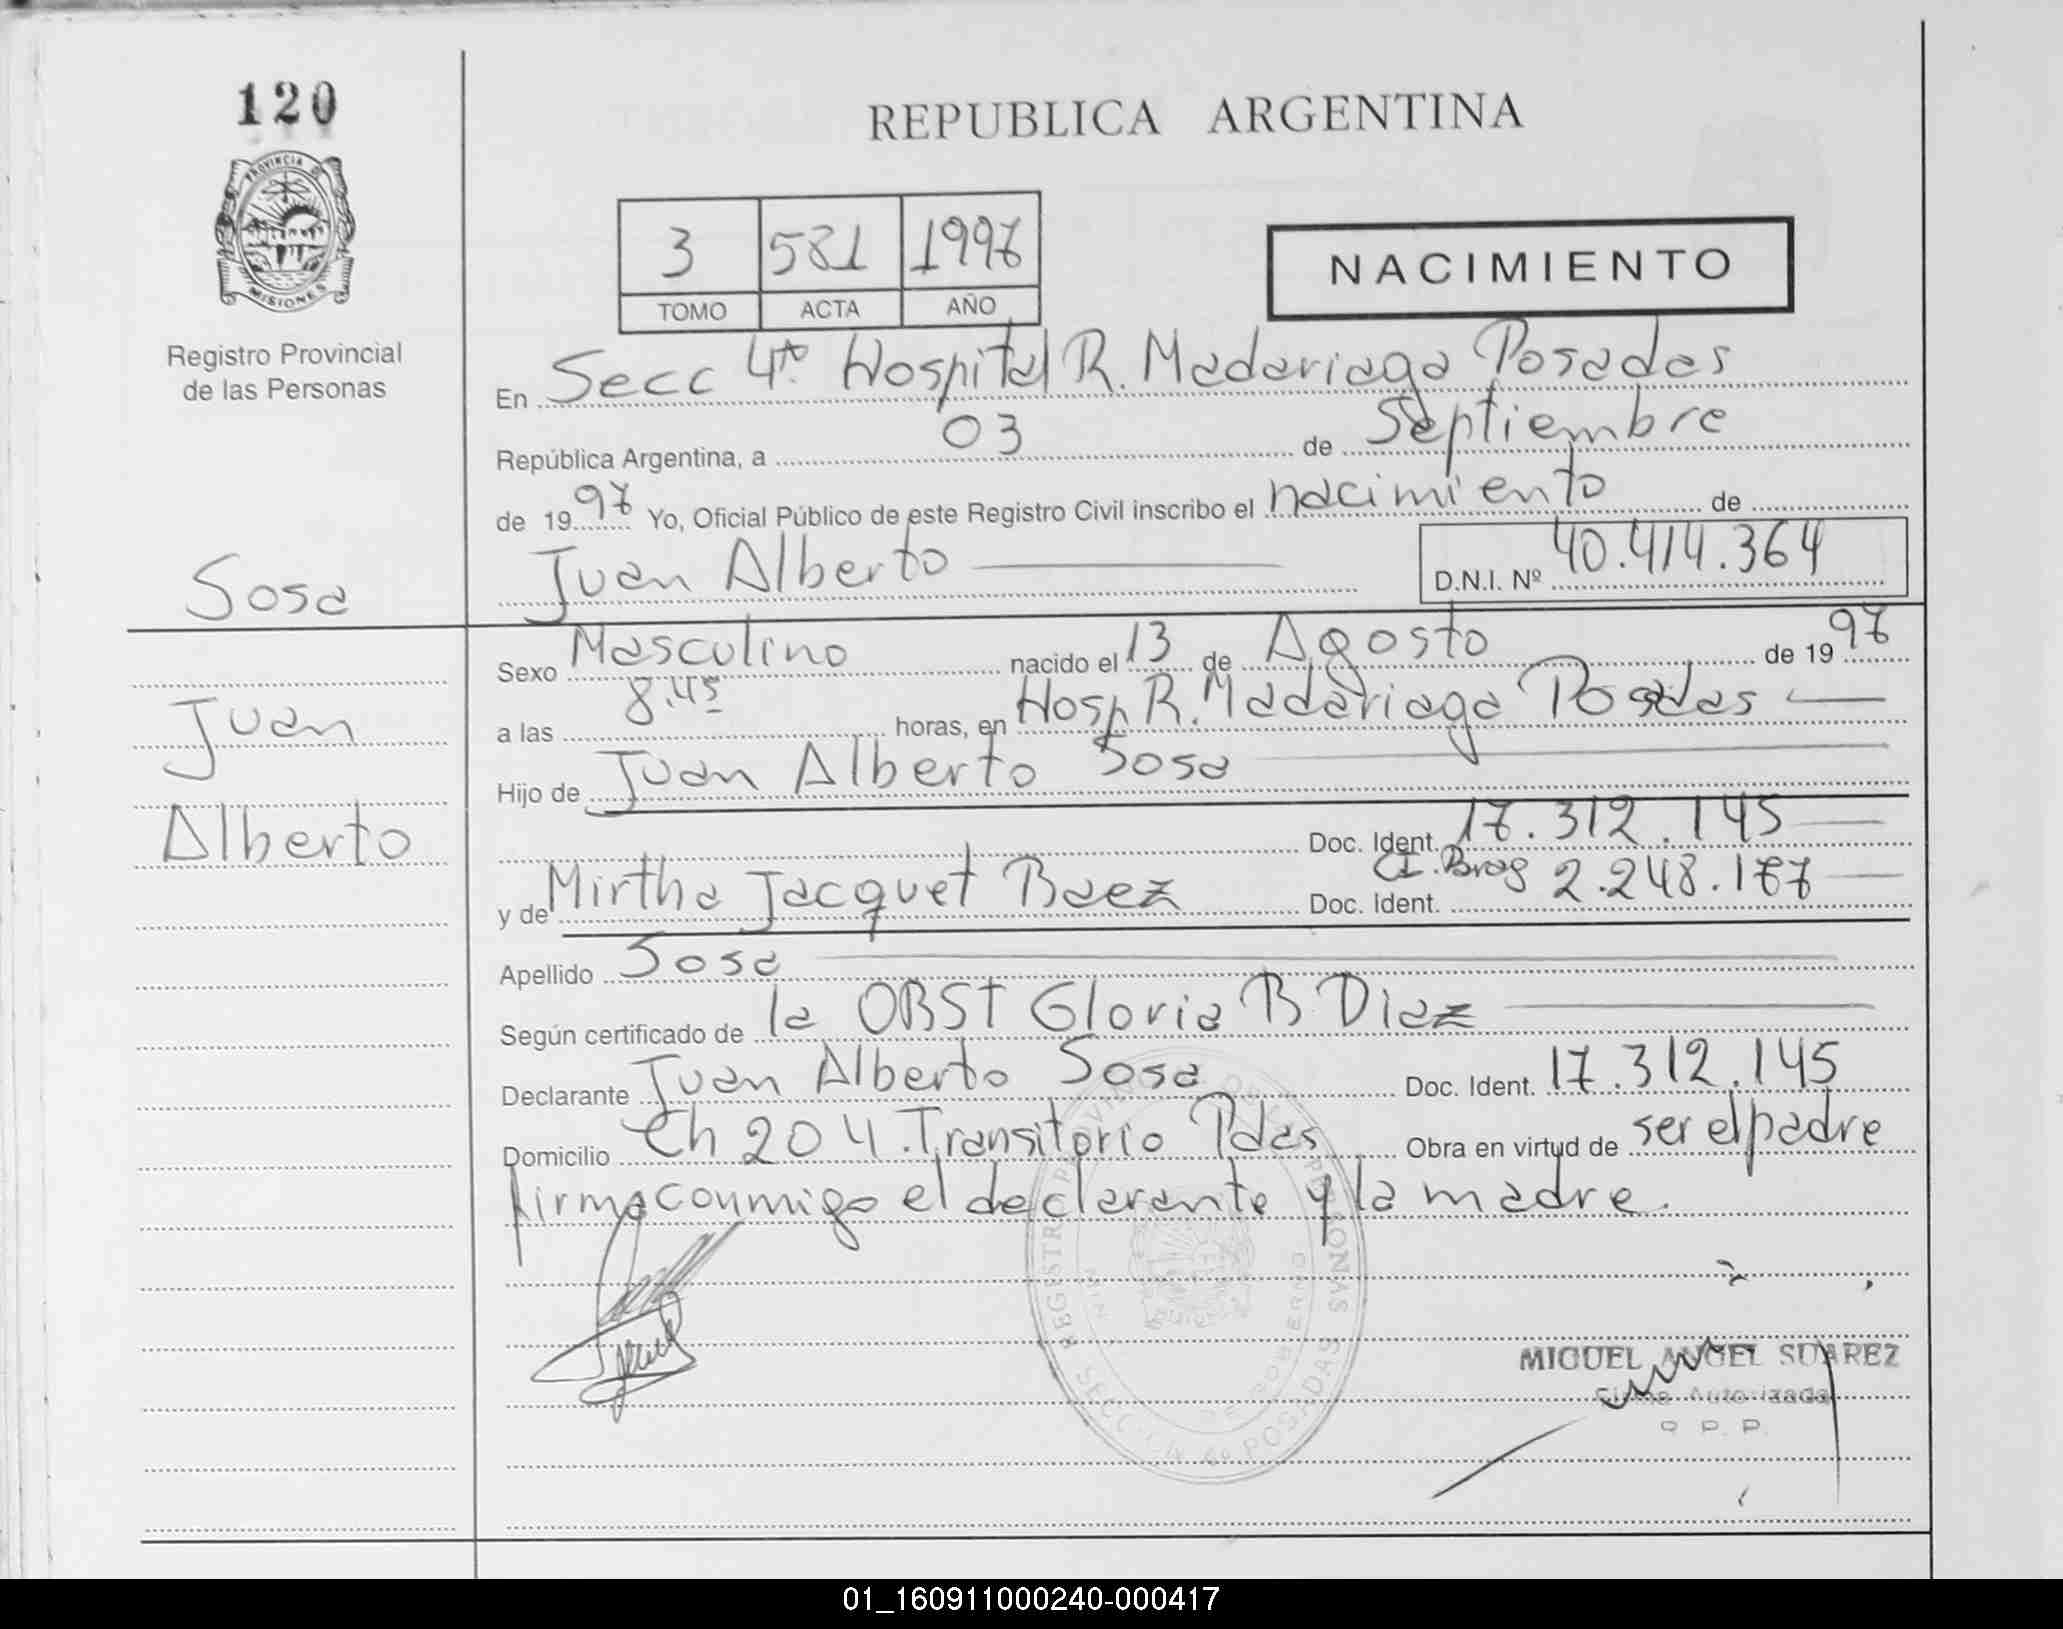 120
PROVINCIA D
MISIONES
Registro Provincial
de las Personas
REPUBLICA ARGENTINA
3 581 1997
TOMO ACTA AÑO
NACIMIENTO
En Secc 4ta Hospital R. Madariaga Posadas
República Argentina, a 03 de Septiembre
de 1997 Yo, Oficial Público de este Registro Civil inscribo el nacimiento de
Juan Alberto D.N.I. Nº 40.414.364
Sosa
Juan
Alberto
Sexo Masculino nacido el 13 de Agosto de 1997
a las 8.45 horas, en Hosp R. Madariaga Posadas
Hijo de Juan Alberto Sosa
Doc. Ident. 17.312.145
y de Mirtha Jacquet Baez Doc. Ident. CI. Brog 2.248.177
Apellido Sosa
Según certificado de la OBST Gloria B Diaz
Declarante Juan Alberto Sosa Doc. Ident. 17.312.145
Domicilio Ch 204. Transitorio Pdas Obra en virtud de ser el padre
firma conmigo el declarante y la madre.
MIGUEL ANGEL SUAREZ
Firma Autorizada
R. P. P.
01_160911000240-000417